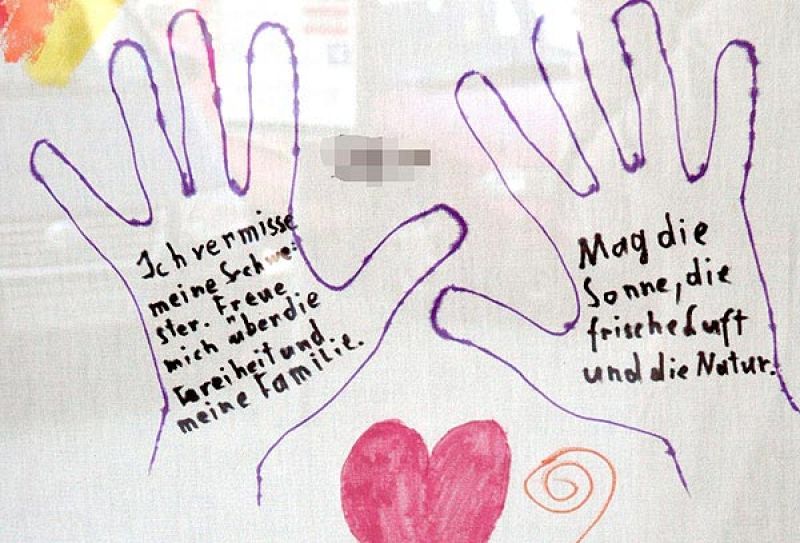 Ich vermisse
meine Schwe-
ster. Freue
mich über die
Freiheit und
meine Familie.
Mag die
Sonne, die
frische Luft
und die Natur.